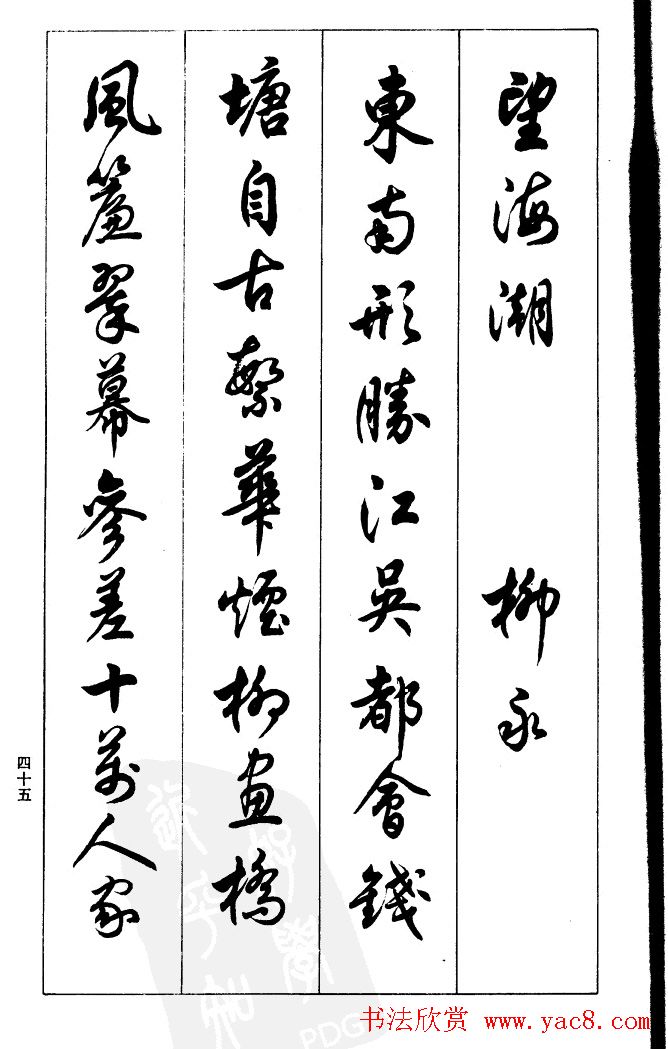 望海潮　柳永
東南形勝江吳都會錢
塘自古繁華煙柳畫橋
風簾翠幕參差十萬人家
四十五
PDG
书法欣赏 www.yac8.com